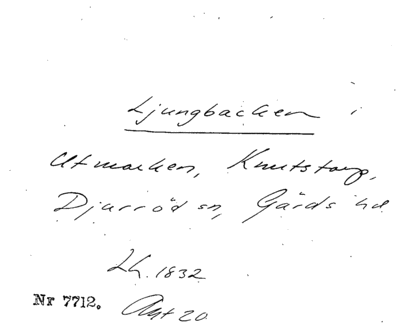 Ljungbacken i
Utmarken, Knutstorp,
Djurröd sn, Gärds hd
Lh. 1832
Nr 7712. Akt 20